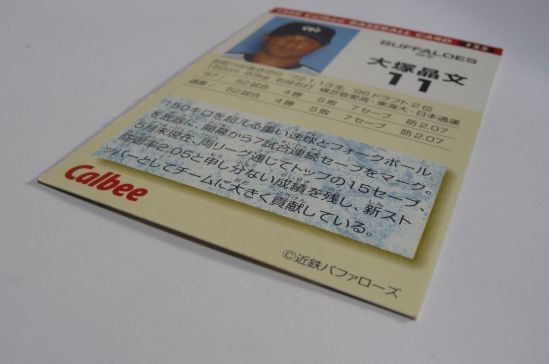 1998 Calbee BASEBALL CARD 155
BUFFALOES
投手
大塚晶文
11
180cm, 83kg 右投右打 横芝敬愛高-東海大-日本通運
'97 52試合 4勝 5敗 7セーブ 防2.07
通算 52試合 4勝 5敗 7セーブ 防2.07
150キロを超える重い速球とフォークボール
を武器に、開幕から7試合連続セーブをマーク。
5月末現在、両リーグ通じてトップの15セーブ、
防御率2.05と申し分ない成績を残し、新スト
ッパーとしてチームに大きく貢献している。
Calbee
©近鉄バファローズ